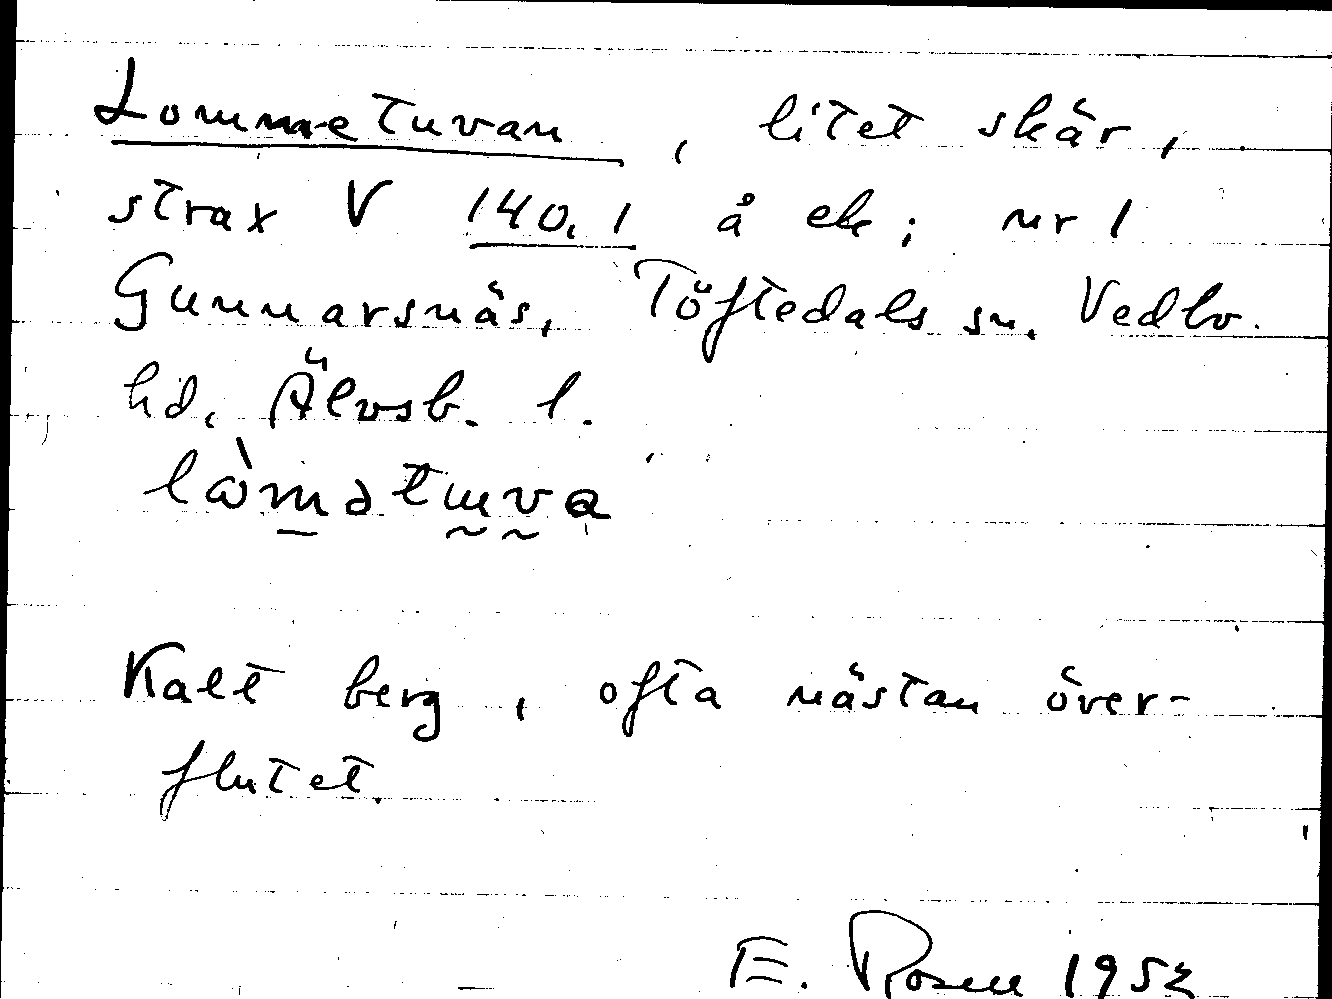 Lommetuvan, litet skär,
strax V 140.1 å ek; nr 1
Gunnarsnäs, Töftedals sn. Vedbo
hd. Älvsb. l.
lὼmətɯva
Kalt berg, ofta nästan över-
flutet.
E. Rosell 1952